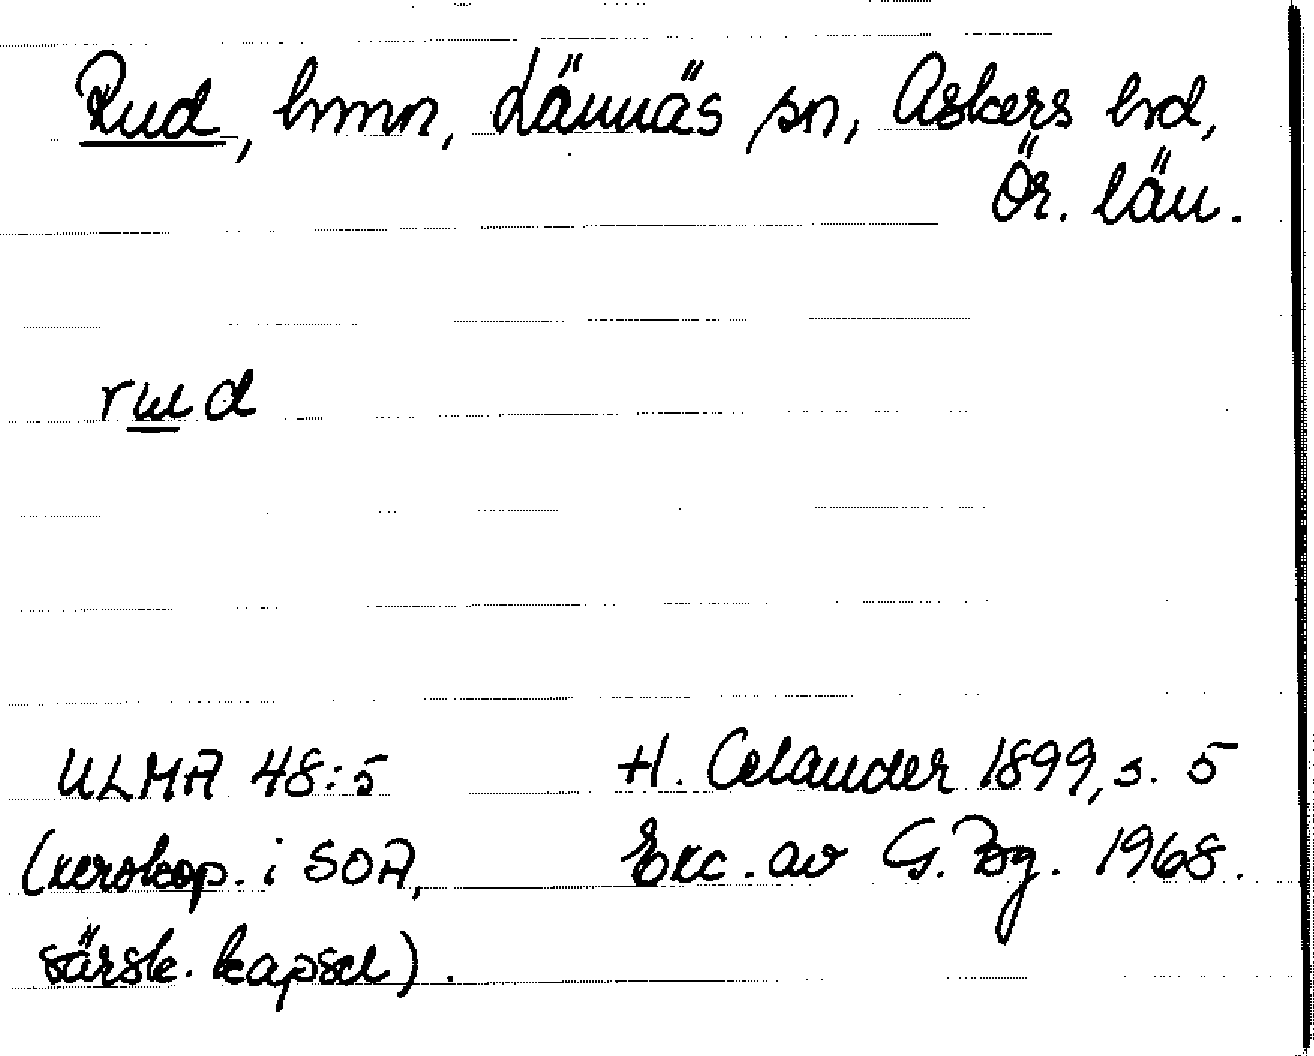 Rud, hmn, Lännäs sn, Askers hd,
Ör. län.
rud
ULMA 48:5
(xerokop. i SOA,
särsk. kapsel).
H. Celander 1899, s. 5
Exc. av G. Bg. 1968.